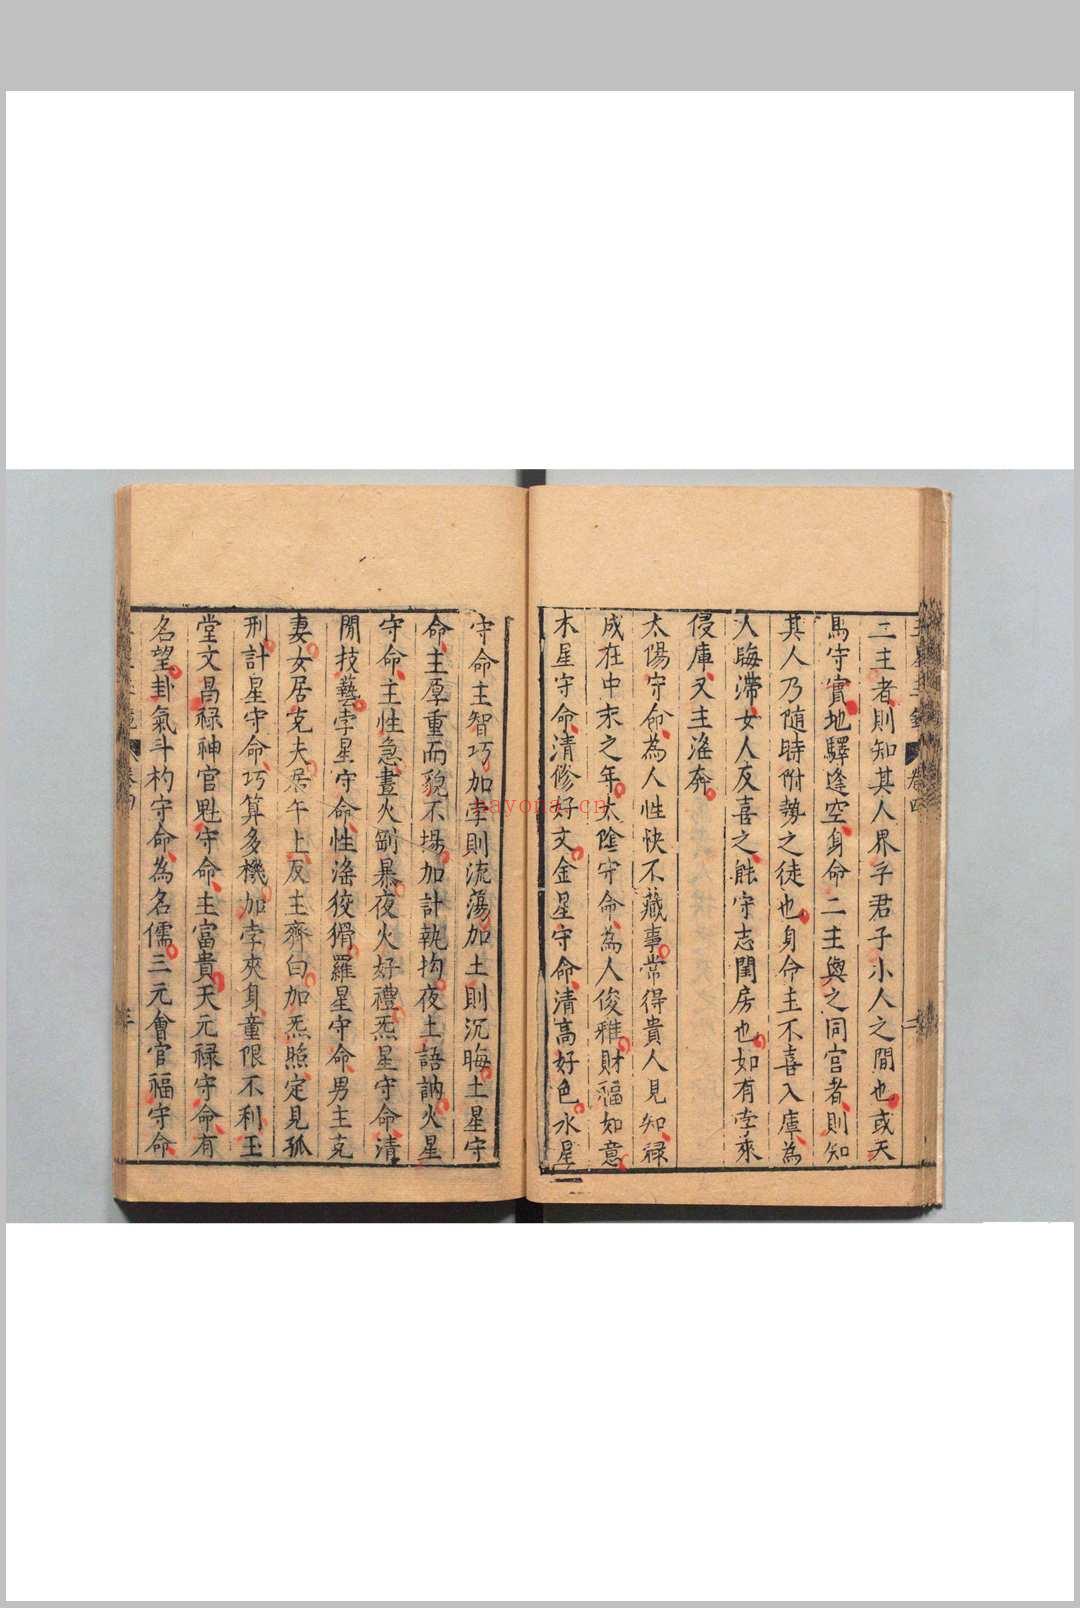 二主者則知其人界乎君子小人之間也或天
馬守實地驛逢空身命二主與之同宮者則知
其人乃隨時附勢之徒也身命主不喜入庫為
人晦滯女人反喜之能守志閨房也如有孛乘
侵庫又主滛奔
太陽守命為人性快不藏事常得貴人見知祿
成在中末之年太陰守命為人俊雅財福如意
木星守命清修好文金星守命清高好色水星
守命主智巧加孛則流蕩加土則沉晦土星守
命主厚重而貌不揚加計執拘夜土語訥火星
守命主性急晝火剛暴夜火好禮炁星守命清
閒技藝孛星守命性滛狡猾羅星守命男主克
妻女居克夫居午上反主齊白加炁照定見孤
刑計星守命巧算多機加孛夾身童限不利玉
堂文昌祿神官魁守命主富貴天元祿守命有
名望卦氣斗杓守命為名儒三元會官福守命
卷四
二
卷四
三
nayona.cn